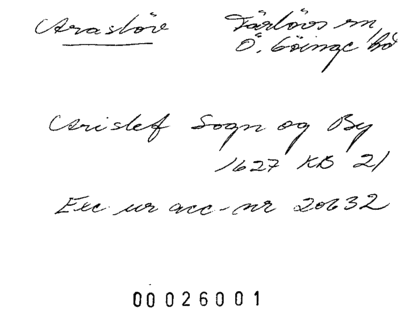 Araslöv Färlövs sn,
Ö. Göinge hd
Arislef Sogn og By
1627 KB 21
Exc ur acc-nr 20632
00026001